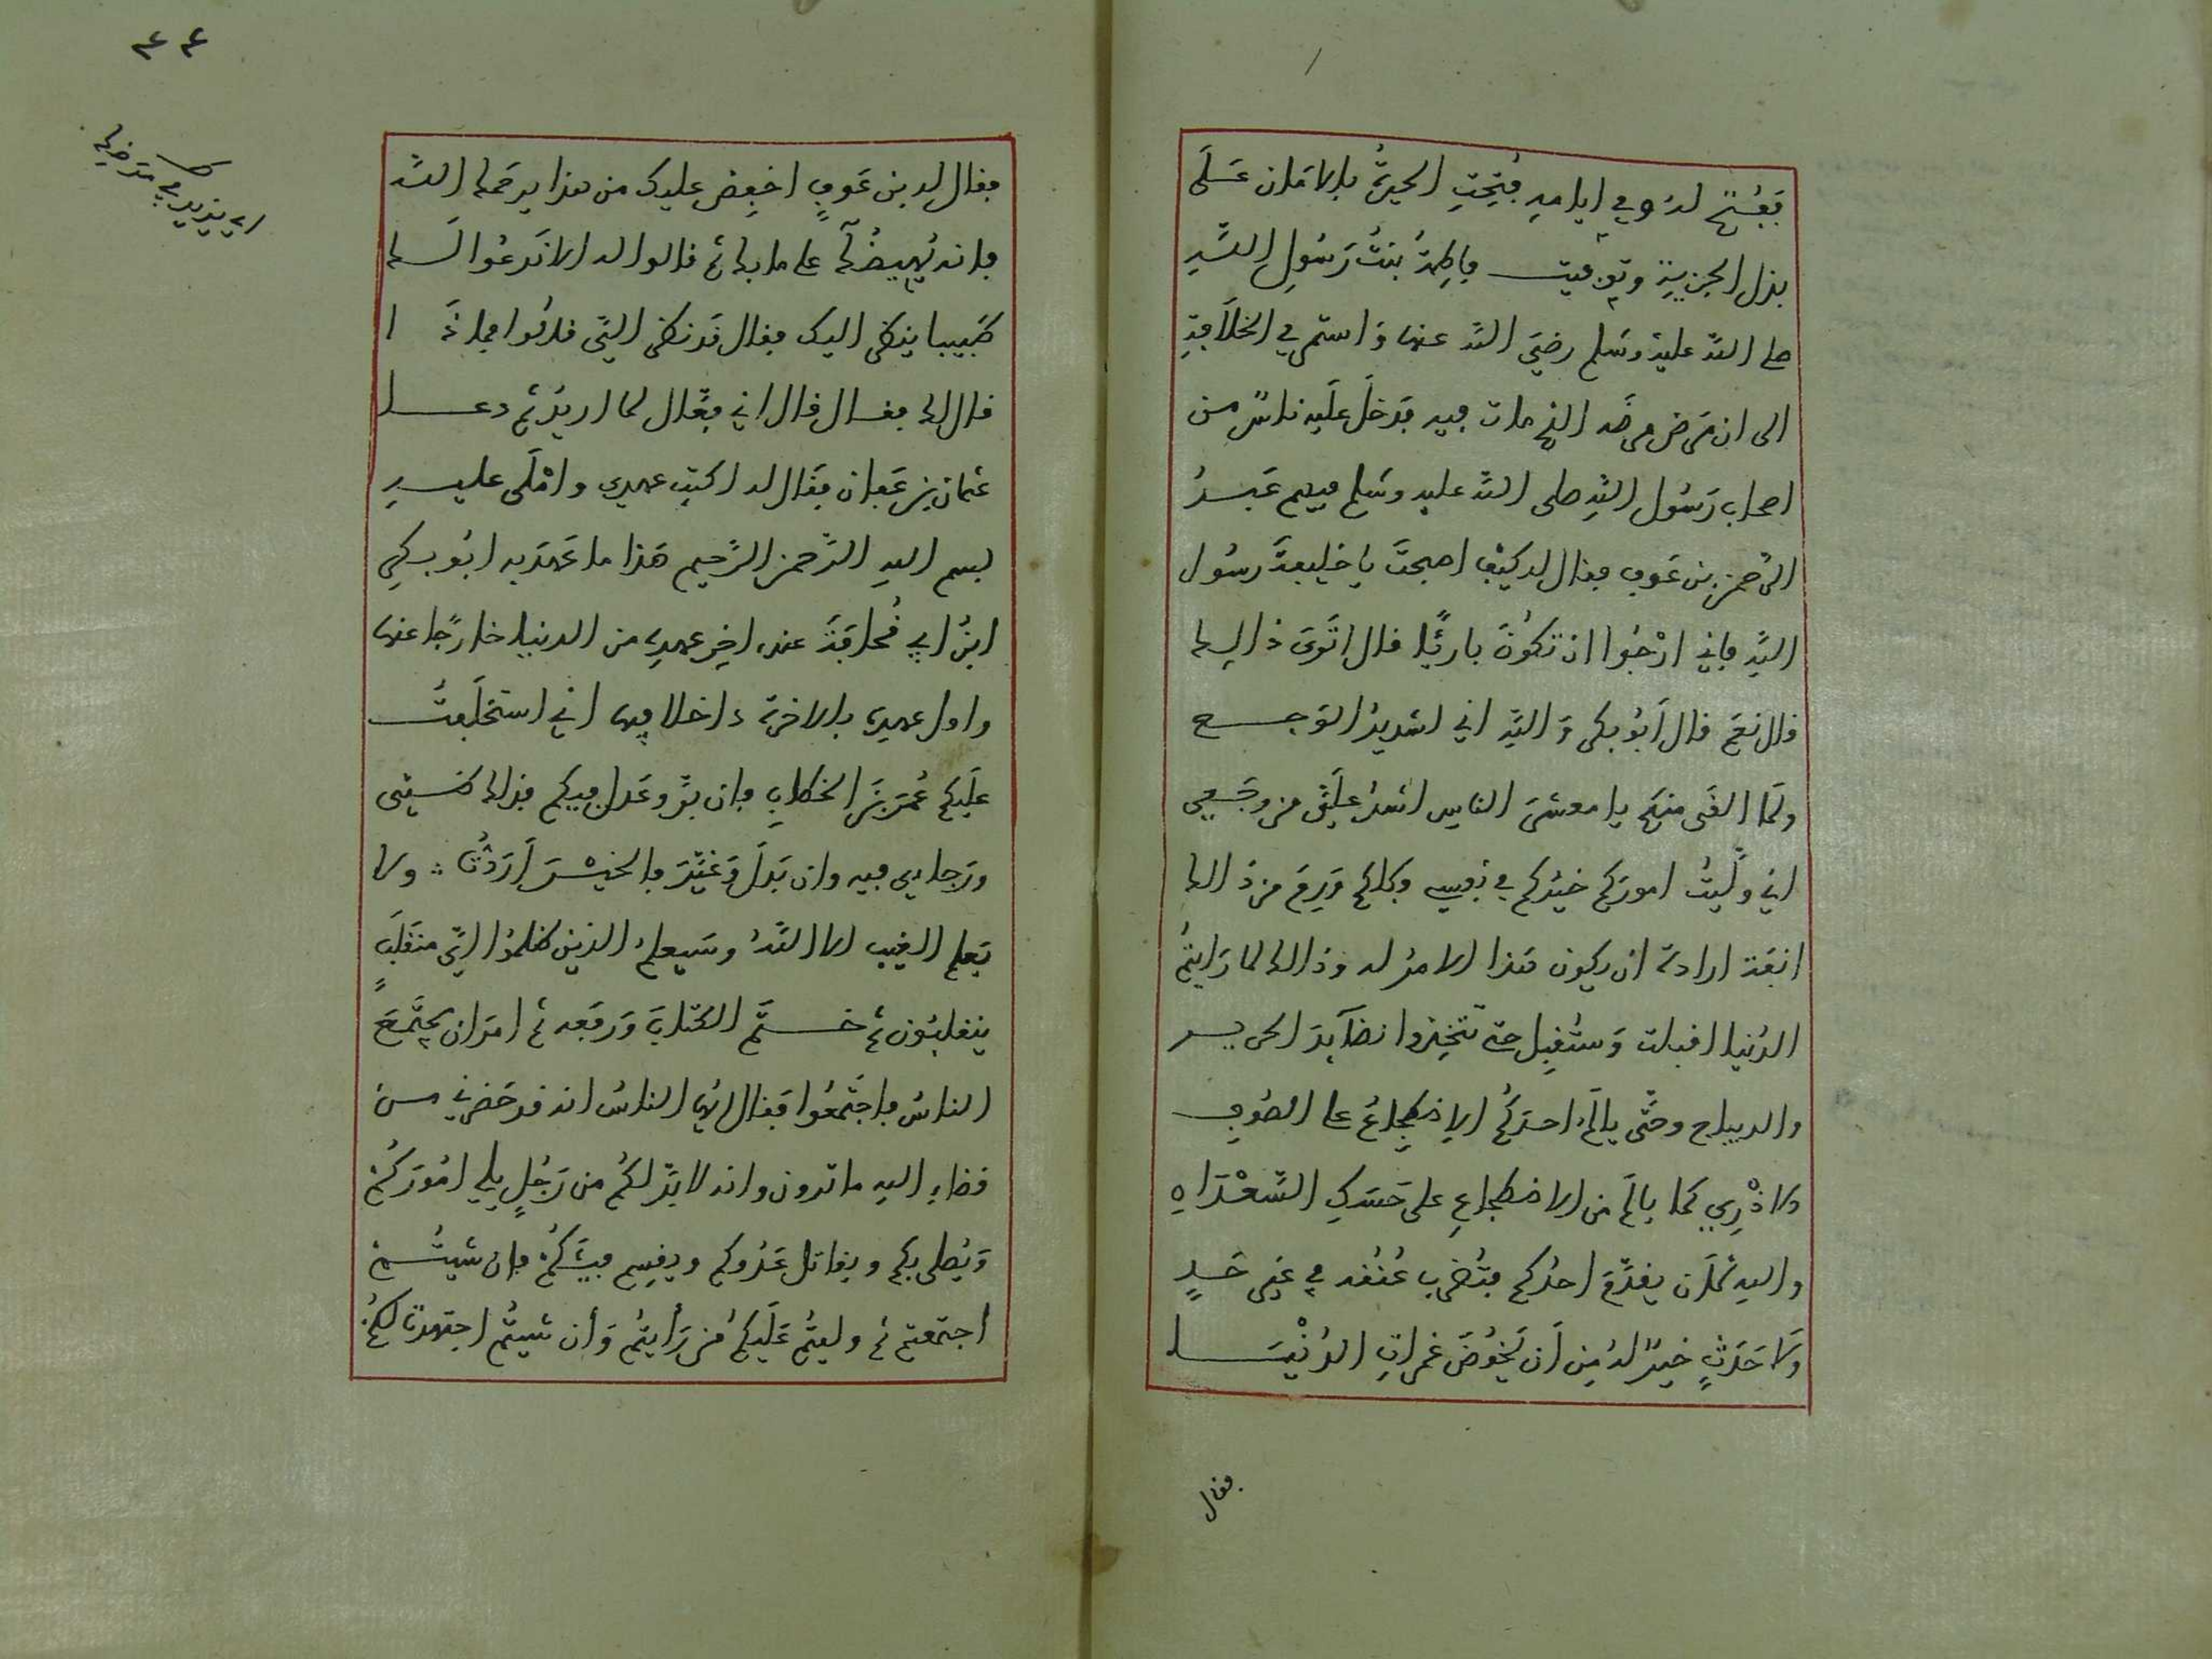 فَفُتِحَ لهُ وفي ايامهِ فُتِحَتِ الحيرةُ بالامَان عَلَى
بذل الجزيةِ وتوفيت فاطمةُ بنتُ رَسُولِ اللَّهِ
صلى اللَّه عليهُ وسَلم رضيَ اللَّه عنها وَاستمر في الخلاَفةِ
الى ان مَرض مرضَه الذي مات فيه فدَخلَ عَلَيه ناسٌ من
اصحاب رَسُول اللَّهِ صلى اللَّه عليه وسَلم فيهم عَبدُ
الرَّحمن بن عَوف فقال له كيْف اصبحتَ يا خليفةَ رسُول
اللَّهِ فاني ارْجُوا ان تكُونَ بارئًا قال اتَرَى ذالك
قال نعَم قال اَبُو بكر وَاللَّهِ اني لشديدُ الوَجع
ولَمَا القَى منكم يا معشرَ الناس اشدُ علَيَّ من وجَعِي
اني ولَّيتُ امورَكم خيْرَكم في نفسِي وكلكم وَرِمَ من ذالك
انفَه ارادة ان يكون هَذا الامرُ له وذالك لما رَايتمُ
الدُنيا اقبلت وَستُقبِل حتى تتخِذوا نضآيدَ الحرير
والديباج وحتَّى يالَمَ احدَكُم الاِضطِجاعُ على الصُوف
الاذْرِيي كما يالَم من الاضطجاعِ على حَسَكِ السَّعْدَان
والله لَان يقدَّمَ احدُكم فتُضرب عُنُقه في غَير حَدٍ
ولَا حَدَثٍ خيرٌ لهُ مِن اَن يَخُوضَ غمراتِ الدُنْيَا
فقال
٤٤
فقال له بن عَوفٍ اخفِض عليك من هذا يرحَمك اللَّه
فانه يُهِيضُكَ على ما بك ثم قالوا له الا نَدعُوا لَك
طَبيبا ينظر اليك فقال قَد نظر اليَّ قالُوا فماذَا
قال لك فقال قال اني فعَّال لما اريدُ ثم دعا
عثمان بن عَفان فقَال له اكتب عهدي وامْلَى عليهِ
بسم الله الرَّحمن الرَّحيم هَذا ما عَهدَ به ابُو بكر
ابنُ ابي قُحافَة عند اخِر عهدِه من الدنيا خارجًا عنها
واول عهدِه بالاخرة داخلا فيها اني استخلَفتُ
علَيكم عُمرَ بنَ الخطابِ فان بَرَّ وعَدل فيكم فذلك ظني
ورَجاءي فيه وان بَدلَ وَغَيَّرَ فالخيْرَ اَرَدْتُ ولا
يَعلم الغيب الا اللَّهُ وسَيعلم الذين ظلمُوا ايَّ منقَلَبٍ
ينقلبُون ثم خَتَمَ الكتابَ وَرفَعه ثم امَر ان يجتَمعَ
الناسُ فاجتَمعُوا فقَال ايها الناسُ انه قد حَضرني من
قضاءِ الله ما ترون وانه لا بدَّ لكُم من رَجُلٍ يلي امُورَكُمْ
وَيُصلي بكم ويقاتل عَدُوكم ويقسِم فيئَكُمْ فان شيتُمْ
اجتمعتم ثم وليتُم عَلَيكُم مَن رَأيتُم وَأن شيتُم اجتهدت لكُمْ